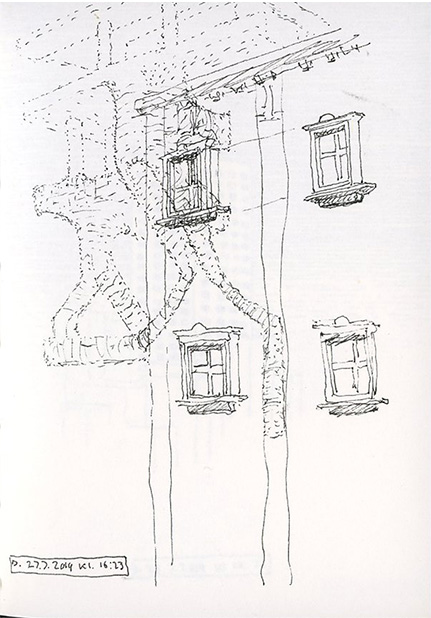 P. 27.7.2019 KL. 16:23